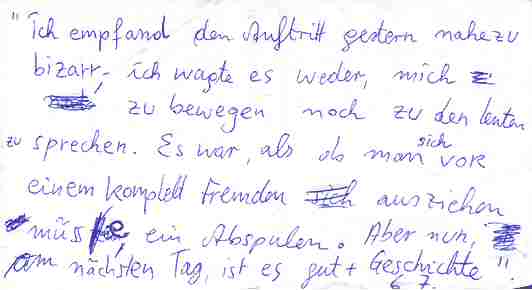 "ich empfand den Auftritt gestern nahezu
bizarr, ich wagte es weder, mich
zu bewegen noch zu den leuten
zu sprechen. Es war, als ob man sich vor
einem komplett Fremden ausziehen
müsse, ein Abspulen. Aber nun,
am nächsten Tag, ist es gut + Geschichte".